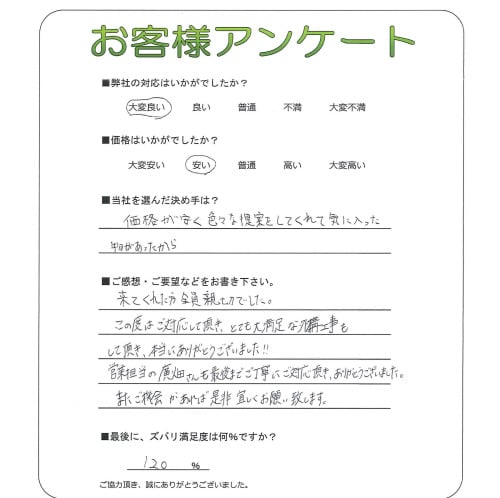 お客様アンケート
■弊社の対応はいかがでしたか？
大変良い 良い 普通 不満 大変不満
■価格はいかがでしたか？
大変安い 安い 普通 高い 大変高い
■当社を選んだ決め手は？
価格が安く色々な提案をしてくれて気に入った
があったから
■ご感想・ご要望などをお書き下さい。
来てくれた方全員親切でした。
この度はご対応して頂き、とても大満足な工事も
して頂き、本当にありがとうございました!!
営業担当の廣畑さんも最後までご丁寧にご対応頂き、ありがとうございました。
またご機会があれば是非宜しくお願い致します。
■最後に、ズバリ満足度は何％ですか？
120 ％
ご協力頂き、誠にありがとうございました。